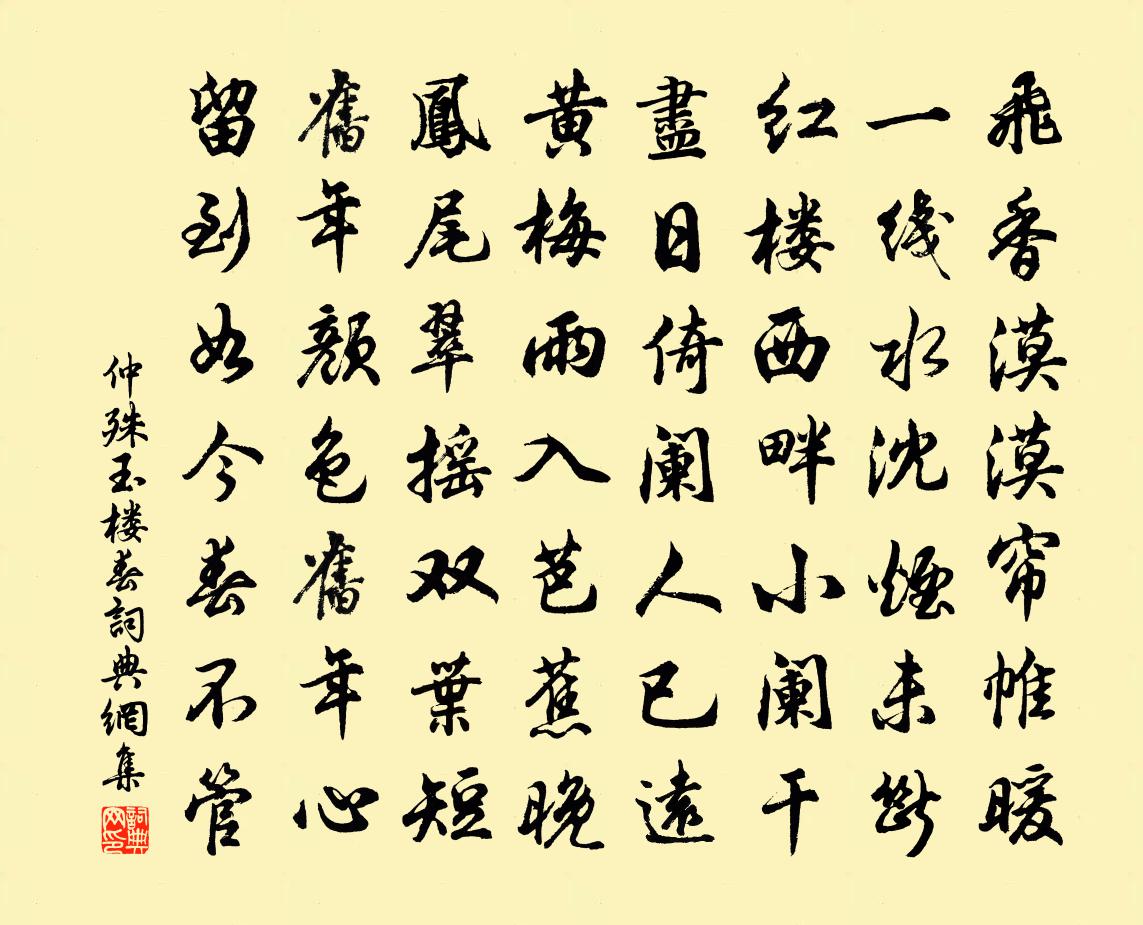 飛香漠漠帘帷暖
一线水沈煙未斷
红楼西畔小阑干
盡日倚阑人已遠
黄梅雨入芭蕉晚
鳳尾翠摇双葉短
舊年颜色舊年心
留到如今春不管
仲殊玉楼春詞典網集
詞典
网印